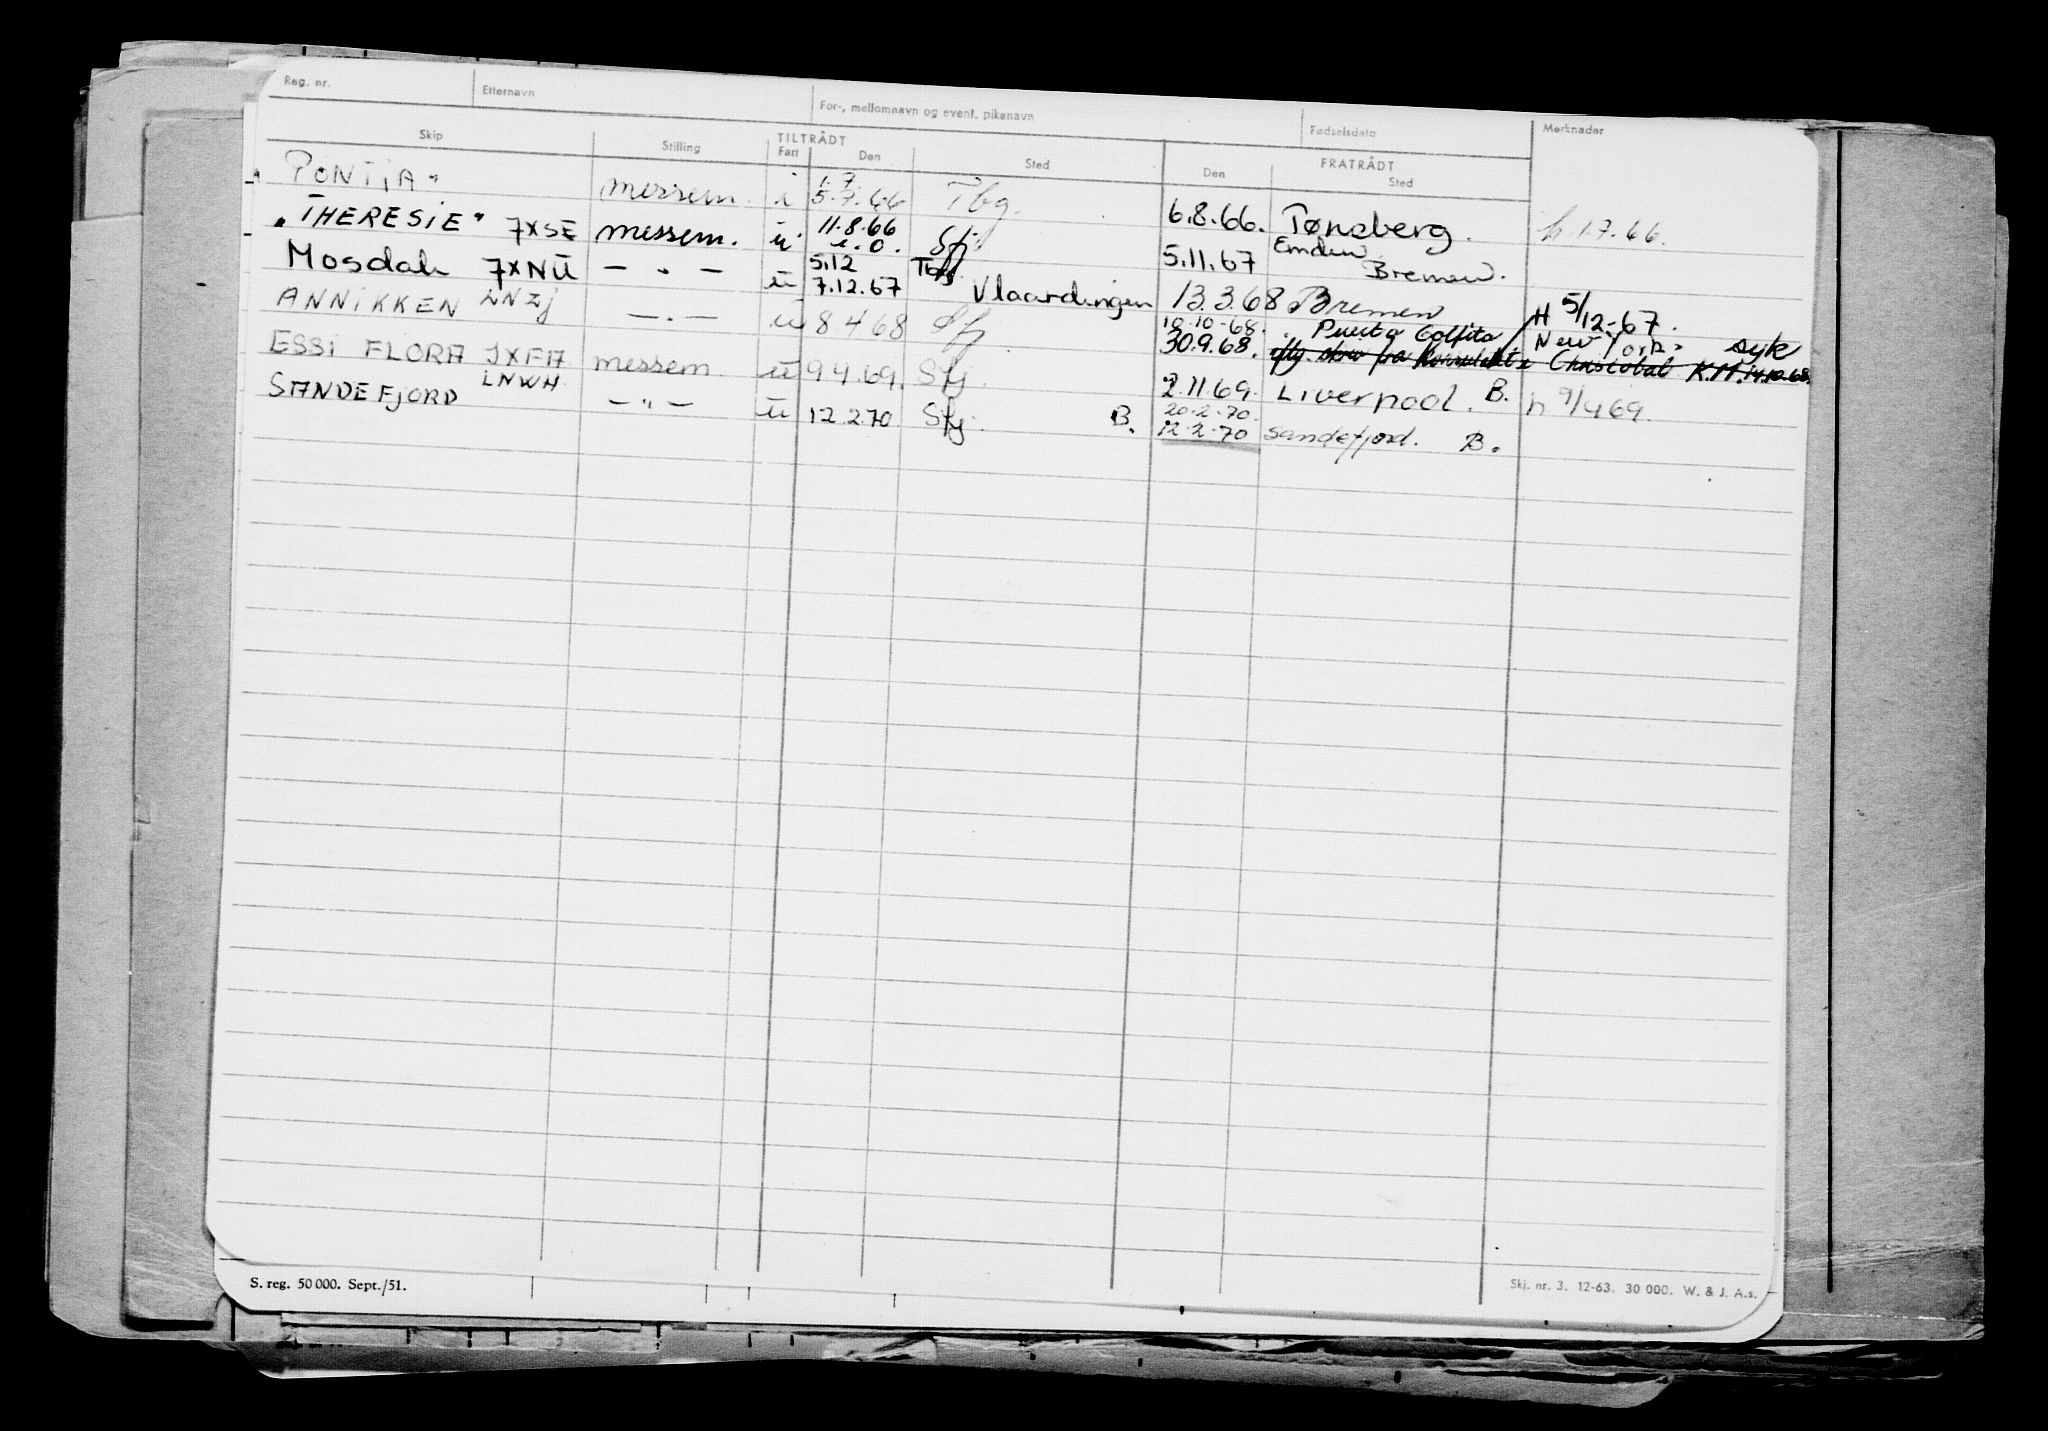 Reg. nr. Etternavn For-, mellomnavn og event. pikenavn Fødselsdato Merknader
Skip Stilling TILTRÅDT Fart Den Sted FRATRÅDT Den Sted
PONTIA" messem. i 1.7 5.7.66 Tbg. 6.8.66. Tønsberg. h. 1.7.66.
"THERESIE" 7XSE messem. u 11.8.66 u.o. Sfj 5.11.67 Emden Bremen.
Mosdale 7XNU — " — u 5.12 7.12.67 Tbg Vlaardingen 13.3.68 Bremen H 5/12-67.
ANNIKKEN LNZJ — " — u 8 4 68 Sfj 10-10-68. 30.9.68. Punta Golfito New York syk
eftg. skriv fra konsulatet i Christobal K.M. 14.10.68.
ESSI FLORA JXFA messem u 9.4.69. Sfj. 2.11.69. Liverpool. B. h 9/4 69.
SANDEFJORD LNWH — " — u 12.2.70 Sfj. B. 20-2-70. 12-2-70 Sandefjord. B.
S. reg. 50 000. Sept./51. Skj. nr. 3. 12-63. 30 000. W. & J. A.s.